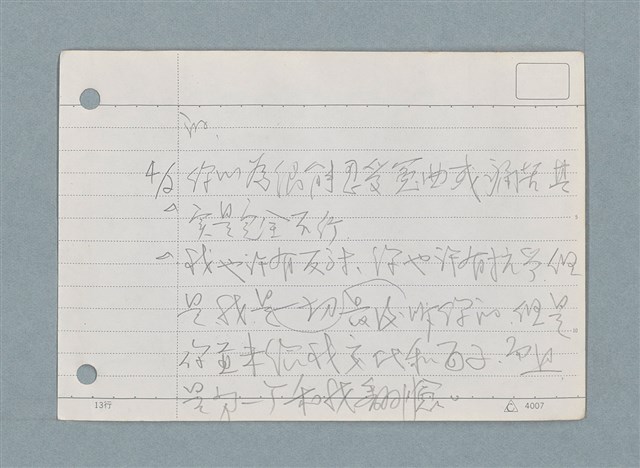 4/2 你以為很能忍受委曲或痛苦其
實是完全不行
我也許有反對、你也許有抗爭但
是我是一切最後听你的但是
你並未給我交代和面子.而且
是另一个和我翻臉。
13行
4007